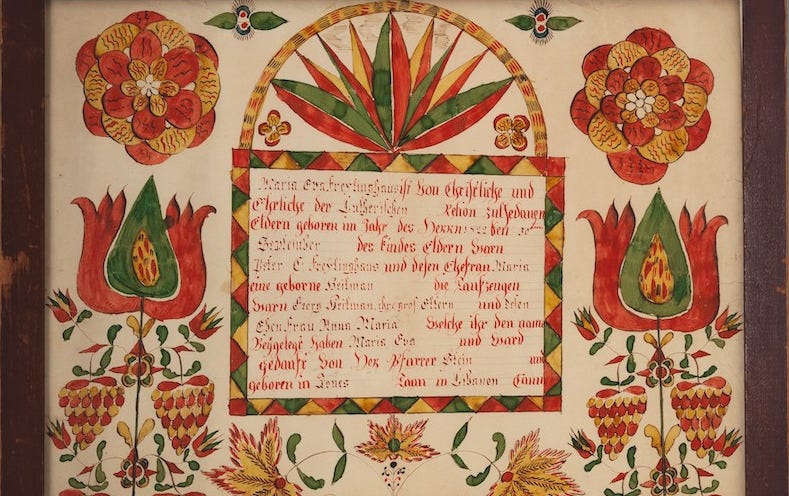 Maria Eva Freylinghaus ist Von Christliche und
Ehrliche der Lutherischen Zulsedanen
Eldern geboren im Jahr des Herrn 1822 den 30ten
September des kindes Eldern Warn
Peter C Freylinghaus und desen Ehefrau Maria
eine geborne Heilman die Taufzeugen
Warn Georg Heilman, ihre gros Eltern und desen
Ehen frau Anna Maria Welche ihr den name
Beygelegt haben Maria Eva und Ward
gedauft Von Her Pfarrer Stein und
geboren in Jones Taun in Libanon Caun